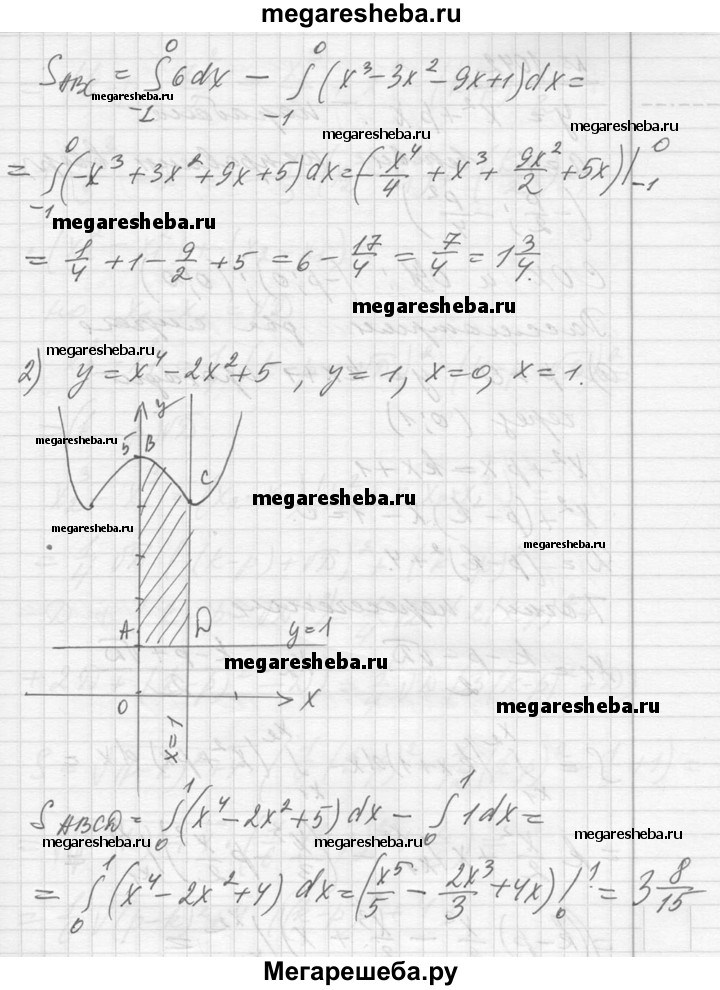 megaresheba.ru
S_ABC = ∫_{-1}^{0} 6dx − ∫_{-1}^{0} (x³−3x²−9x+1)dx =
megaresheba.ru
megaresheba.ru
megaresheba.ru
= ∫_{-1}^{0} (−x³+3x²+9x+5)dx = (−x⁴/4 + x³ + 9x²/2 + 5x)|_{-1}^{0}
megaresheba.ru
= 1/4 + 1 − 9/2 + 5 = 6 − 17/4 = 7/4 = 1 3/4.
megaresheba.ru
megaresheba.ru
2) y = x⁴ − 2x² + 5, y = 1, x = 0, x = 1.
y
megaresheba.ru
5 B
C
megaresheba.ru
megaresheba.ru
megaresheba.ru
A D y=1
megaresheba.ru
0 x
megaresheba.ru
x=1
S_ABCD = ∫_{0}^{1} (x⁴−2x²+5)dx − ∫_{0}^{1} 1dx =
megaresheba.ru
megaresheba.ru
megaresheba.ru
= ∫_{0}^{1} (x⁴−2x²+4)dx = (x⁵/5 − 2x³/3 + 4x)|_{0}^{1} = 3 8/15
megaresheba.ru
Мегарешеба.ру